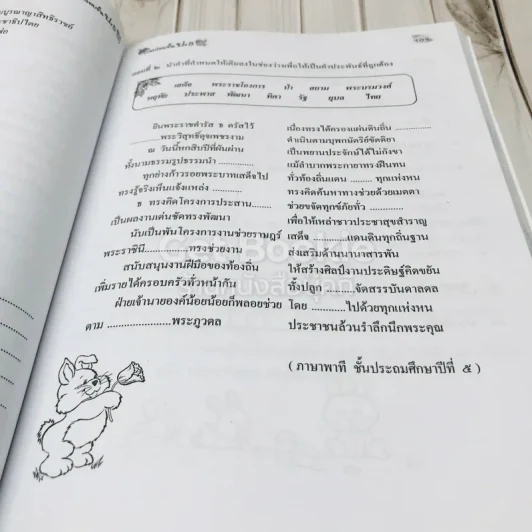 ตอนที่ ๒ นำคำที่กำหนดให้เติมลงในช่องว่างเพื่อให้เป็นคำประพันธ์ที่ถูกต้อง
เสด็จ พระราชโครงการ ป่า สยาม พระบรมวงศ์
หฤทัย ประพาส พัฒนา ทิศา รัฐ ยุบล ไทย
ยินพระราชดำรัส ธ ตรัสไว้ เนื่องทรงได้ครองแผ่นดินถิ่น ..........
..........พระวิสุทธิ์ดุจเพชรงาม ดำเนินตามบุพกษัตริย์ขัตติยา
ณ วันนี้พกสิบปีที่ผันผ่าน เป็นพยานประจักษ์ได้ไม่กังขา
ทั้งนามธรรมรูปธรรมนำ .......... แม้ลำบากพระกายาทรงฝืนทน
ทุกย่างก้าวรอยพระบาทเสด็จไป ทั่วท้องถิ่นแดน .......... ทุกแห่งหน
ทรงรู้จริงเห็นแจ้งแหล่ง .......... ทรงคิดค้นหาทางช่วยด้วยเมตตา
ธ ทรงคิดโครงการประสาน.......... ช่วยขจัดทุกข์ภัยทั่ว ..........
เป็นผลงานเด่นชัดทรงพัฒนา เพื่อให้เหล่าชาวประชาสุขสำราญ
นับเป็นพันโครงการงานช่วยราษฎร์ เสด็จ ..........แดนดินทุกถิ่นฐาน
พระราชินี..........ทรงช่วยงาน ส่งเสริมด้านนานาสารพัน
สนับสนุนงานฝีมือของท้องถิ่น ให้สร้างศิลป์งานประดิษฐ์คิดขยัน
เพิ่มรายได้ครอบครัวทั่วหน้ากัน ทั้งปลูก ..........จัดสรรบันดาลดล
ฝ่ายเจ้านายองค์น้อยน้อยก็พลอยช่วย โดย ..........ไปด้วยทุกแห่งหน
ตาม ....................พระภูวดล ประชาชนล้วนรำลึกนึกพระคุณ
(ภาษาพาที ชั้นประถมศึกษาปีที่ ๕)
Get Bookie